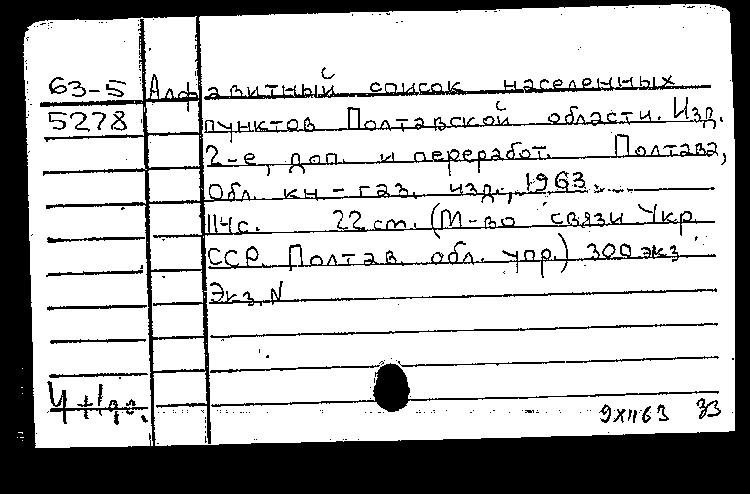 63-5 Алфавитный список населенных
5278 пунктов Полтавской области. Изд.
2-е, доп. и переработ. Полтава,
Обл. кн.-газ. изд., 1963.
114с. 22 см. (М-во связи Укр
ССР. Полтав. обл. упр.) 300 экз
Экз. N
Ч +1
9XII63 33